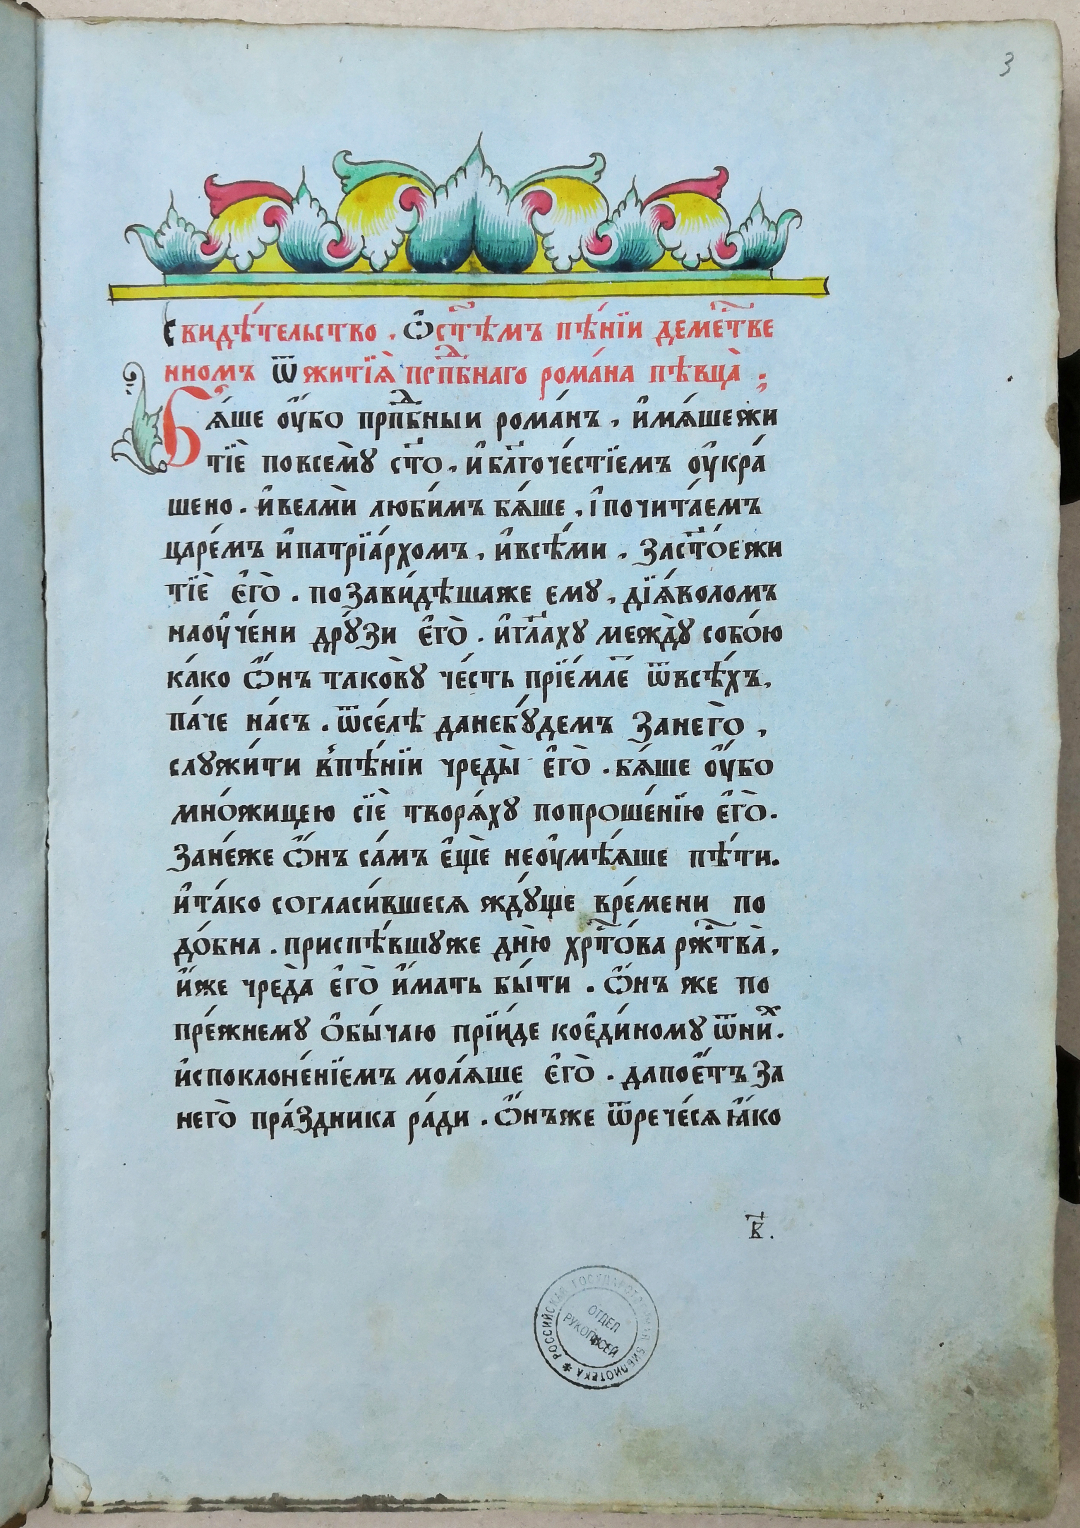 3
Свидѣ́тельство . Ѡ҆ст҃ѣ́мъ пѣ́нїи деме́ст҇ве
нномъ ѿжитїѧ̀ прпⷣбнаго рома́на пѣвца̀ ;
Бѧ́ше ᲂу҆́бо прпⷣбныи рома́нъ , и҆мѧ́ше жи
тїѐ повсемꙋ̀ ст҃о , и҆ бл҃гоче́стїемъ ᲂу҆кра́
шено . и҆ велмѝ люби́мъ бѧ́ше , і҆ почита́емъ
царе́мъ и҆ патрїа́рхомъ , и҆ всѣ́ми . за ст҃ое жи
тїѐ є҆гѡ̀ . позави́дѣша же емꙋ̀ , дїѧ́воломъ
наᲂуче́ни дрꙋ́зи є҆гѡ̀ . и҆ гл҃ахꙋ междꙋ̀ собо́ю
ка́ко ѻ҆́нъ такову̀ че́сть прїе́мле ѿвсѣ́хъ ,
па́че на́съ . ѿсе́лѣ да небꙋ́демъ за него̀ ,
слꙋжи́ти в пѣ́нїи чреды̀ є҆гѡ̀ . бѧ́ше ᲂу҆́бо
мно́жицею сїѐ творѧ́хꙋ попроше́нїю є҆гѡ̀ .
зане́же ѻ҆́нъ са́мъ є҆щѐ неᲂумѣ́ѧше пѣ́ти .
и҆ та́ко согласи́вшесѧ жд́ꙋще вре́мени по
до́бна . приспѣ́вшꙋже дню̀ хрⷭ҇то́ва ржⷭ҇тва̀ ,
и҆́же чреда̀ є҆гѡ̀ и҆́мать бы́ти . ѻ҆́нъ же по
пре́жнемꙋ ѻ҆бы́чаю прїи́де коє҆ди́номꙋ ѿ ниⷯ .
и҆ с поклоне́нїемъ молѧ́ше є҆гѡ̀ . да пое́тъ за
него̀ пра́здника ра́ди . ѻ҆́нъже ѿрече́сѧ ꙗ҆́ко
в҃ .
РОССИЙСКАЯ ГОСУДАРСТВЕННАЯ БИБЛИОТЕКА
ОТДЕЛ
РУКОПИСЕЙ